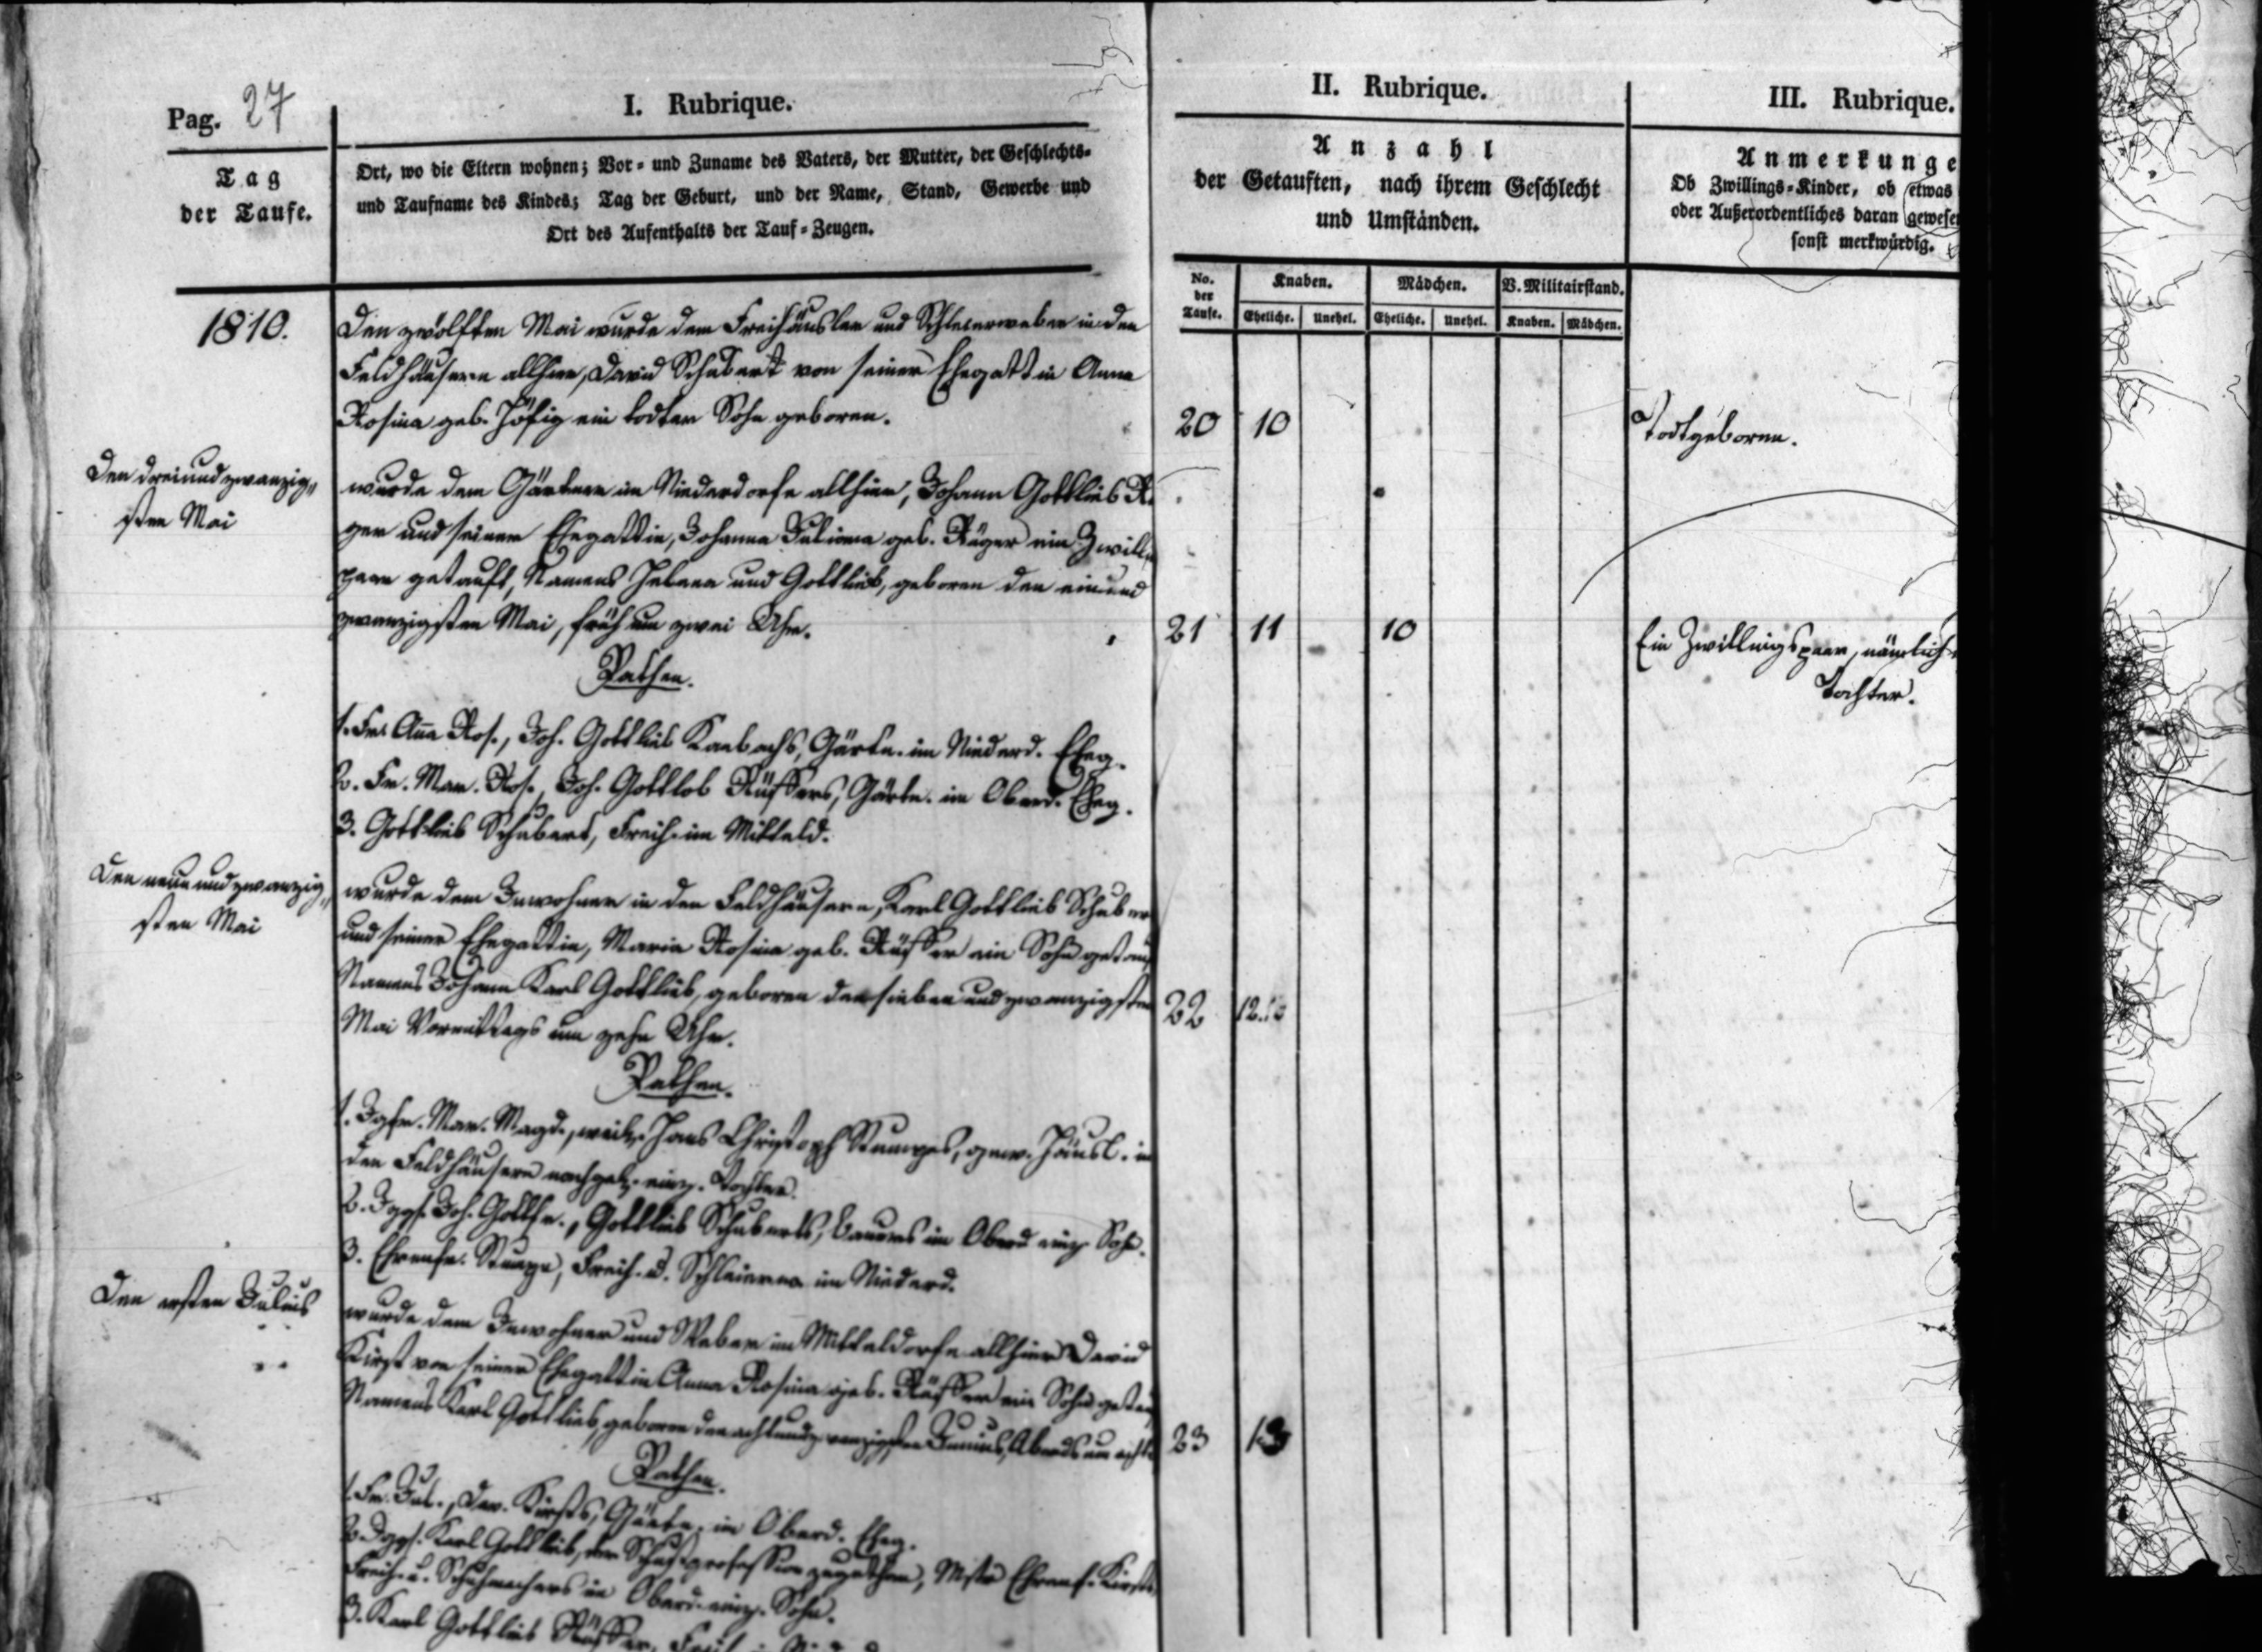 Pag. 27
I. Rubrique.
II. Rubrique.
III. Rubrique.
Tag
der Taufe.
Ort, wo die Eltern wohnen; Vor- und Zuname des Vaters, der Mutter, der Geschlechts-
und Taufname des Kindes; Tag der Geburt, und der Name, Stand, Gewerbe und
Ort des Aufenthalts der Tauf-Zeugen.
Anzahl
der Getauften, nach ihrem Geschlecht
und Umständen.
Anmerkunge
Ob Zwillings-Kinder, ob etwas
oder Außerordentliches daran gewesen
sonst merkwürdig.
No.
der
Taufe.
Knaben. Mädchen. V. Militairstand.
Eheliche. Unehel. Eheliche. Unehel. Knaben. Mädchen.
1810.
Den zwölften Mai wurde dem Freihäusler und Schleierweber in den
Feldhäusern allhier, David Schubert von seiner Ehegattin Anna
Rosina geb. ein todter Sohn geboren.
20 10 Todtgeboren.
Den dreiundzwanzig-
sten Mai
wurde dem Gärtner im Niederdorfe allhier, Johann Gottlieb
ger und seiner Ehegattin, Johanna Juliana geb. ein Zwill
paar getauft, Namens Helena und Gottlieb, geboren den einund
zwanzigsten Mai, früh um zwei Uhr.
21 11 10 Ein Zwillingspaar, nämlich
Tochter.
Pathen.
1. Fr. Anna Ros., Joh. Gottlieb Gärtn. im Niederd. Eheg.
2. Fr. Mar. Ros., Joh. Gottlob Rüffers, Gärtn. im Oberd. Eheg.
3. Gottlieb Schubert, Freih. im Mitteld.
Den neunundzwanzig-
sten Mai
wurde dem Inwohner in den Feldhäusern, Karl Gottlieb Schuber
und seiner Ehegattin, Maria Rosina geb. Rüffer ein Sohn getauf
Namens Johann Karl Gottlieb, geboren den siebenundzwanzigsten
Mai Vormittags um zehn Uhr.
22 12
Pathen.
1. Jgfr. Mar. Magd., weil. Hans Christoph gew. Häusl. in
den Feldhäusern nachgel. einz. Tochter.
2. Jggs. Joh. Gottfr., Gottlieb Schuberts, Bauers im Oberd. einz. Sohn.
3. Ehrenfr. Freih. u. im Niederd.
Den ersten Julius
wurde dem Inwohner und Weber im Mitteldorfe allhier David
Kirst von seiner Ehegattin Anna Rosina geb. Rüffer ein Sohn getau
Namens Karl Gottlieb, geboren den achtundzwanzigsten Junius, Abends um acht
23 13
Pathen.
1. Fr. Jul., Dav. Kirsts, Gärtn. im Oberd. Eheg.
2. Jggs. Karl Gottlieb, der Mstr. Ehrenf. Kirsts,
Freih. u. Schuhmachers im Oberd. einz. Sohn.
3. Karl Gottlieb Rüffer,